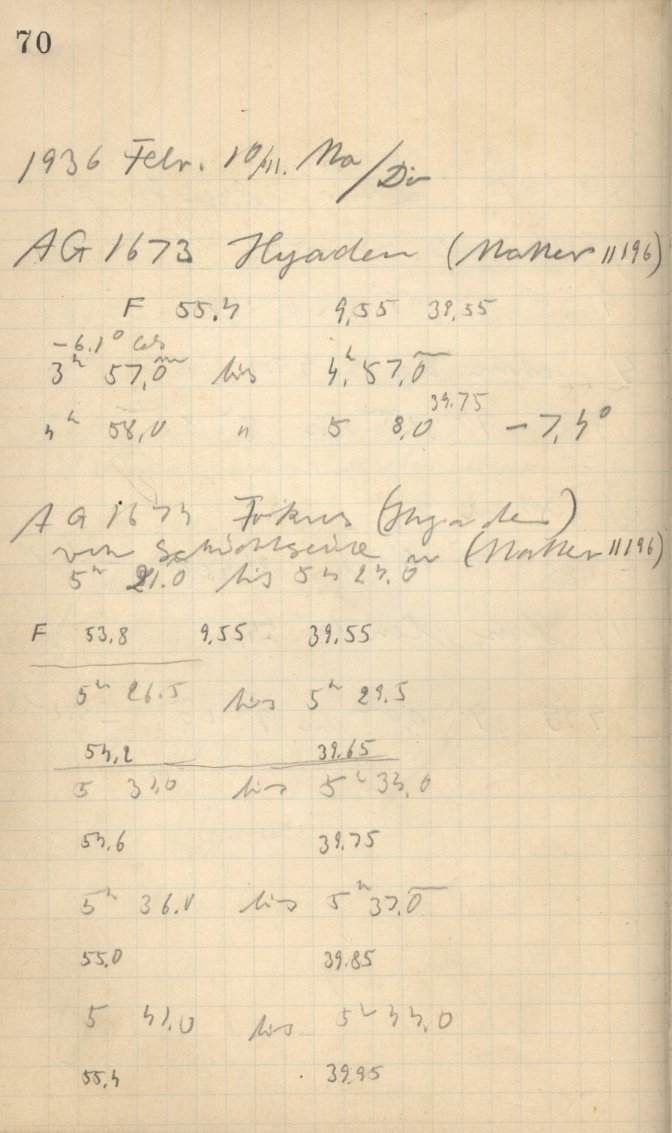 70
1936 Febr. 10/11. Mo/Di
AG 1673 Hyaden ( 11196)
F 55.4 9,55 39,55
-6.1° Cels
3h 57,0m bis 4h 57,0m
39.75
4h 58,0 " 5 8,0 -7,4°
AG 1674 Fokus (Hyaden)
von Schichtseite ( 11196)
5h 21.0 bis 5h 24.0m
F 53,8 9,55 39,55
5h 26.5 bis 5h 29.5
54,2 39.65
5 31,0 bis 5h 34,0
54.6 39.75
5h 36.0 bis 5h 39,0
55,0 39.85
5 41,0 bis 5h 44,0
55,4 39,95